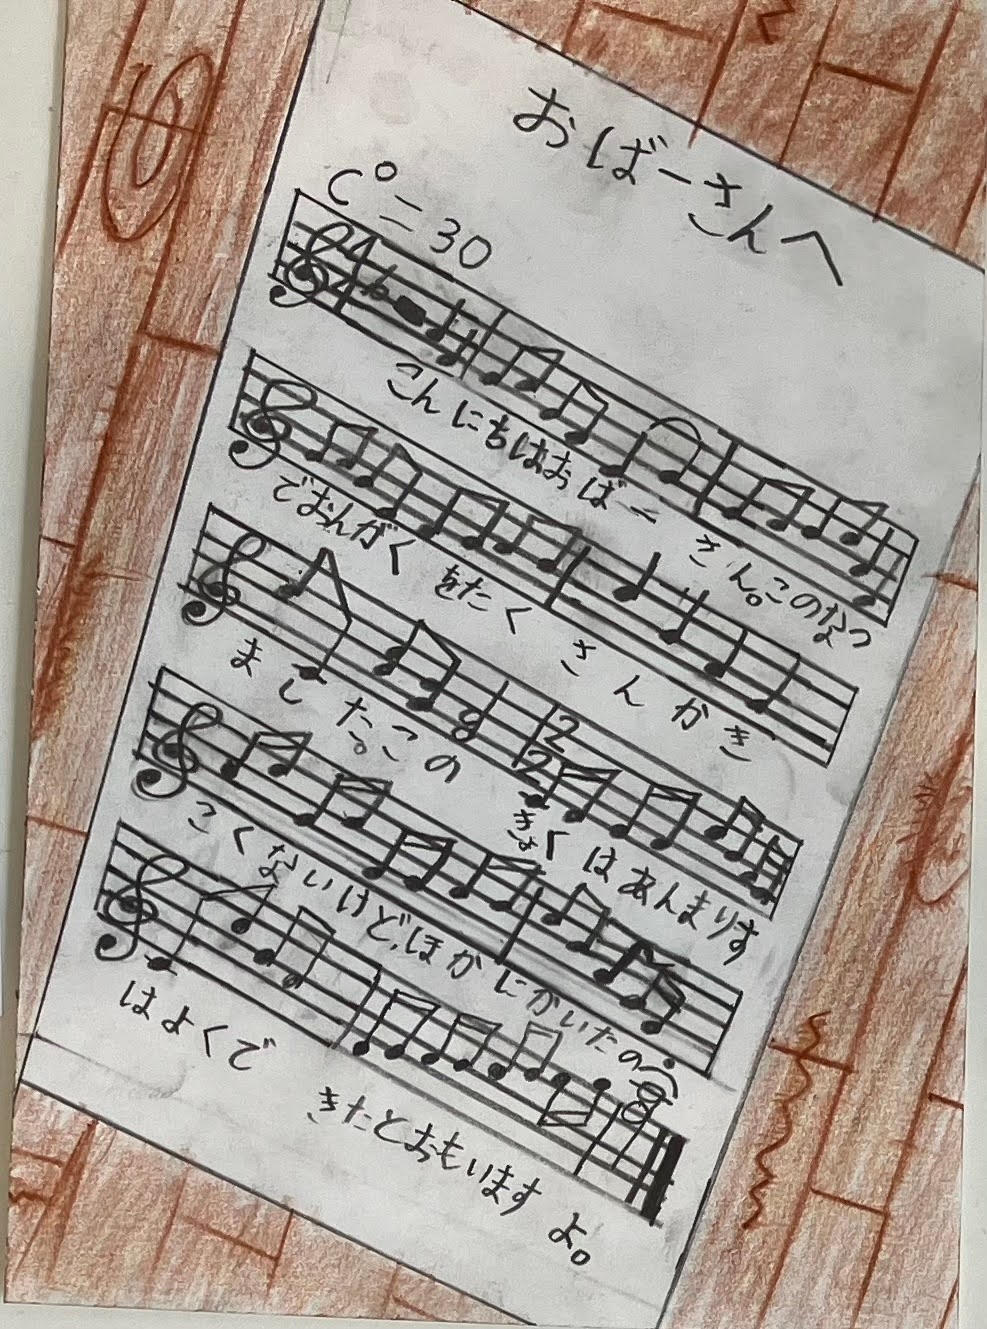 おばーさんへ
C°=30
こんにちはおばーさん。このなつ
でおんがくをたくさんかき
ましたこの。きょくはあんまりす
ごくないけど、ほかにかいたの
はよくできたとおもいますよ。